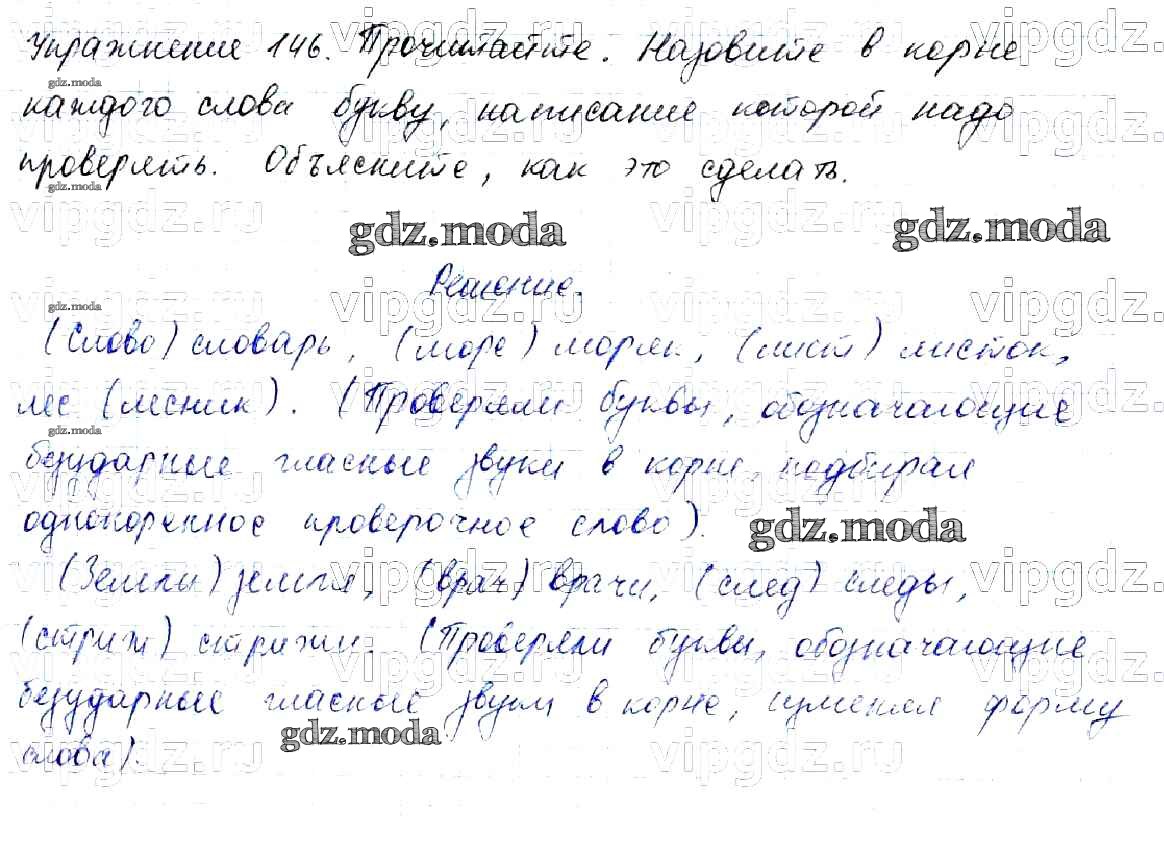 Упражнение 146. Прочитайте. Назовите в корне
gdz.moda
каждого слова букву, написание которой надо
проверять. Объясните, как это сделать.
gdz.moda
vipgdz.ru
gdz.moda
gdz.moda
Решение.
gdz.moda
(Слово) словарь, (море) моряк, (лист) листок,
лес (лесник). (Проверяли буквы, обозначающие
gdz.moda
безударные гласные звуки в корне, подбирая
однокоренное проверочное слово).
gdz.moda
(Земли) земля, (врач) врачи, (след) следы,
(стриж) стрижи. (Проверяли буквы, обозначающие
безударные гласные звуки в корне, изменяя форму
gdz.moda
слова).
vipgdz.ru